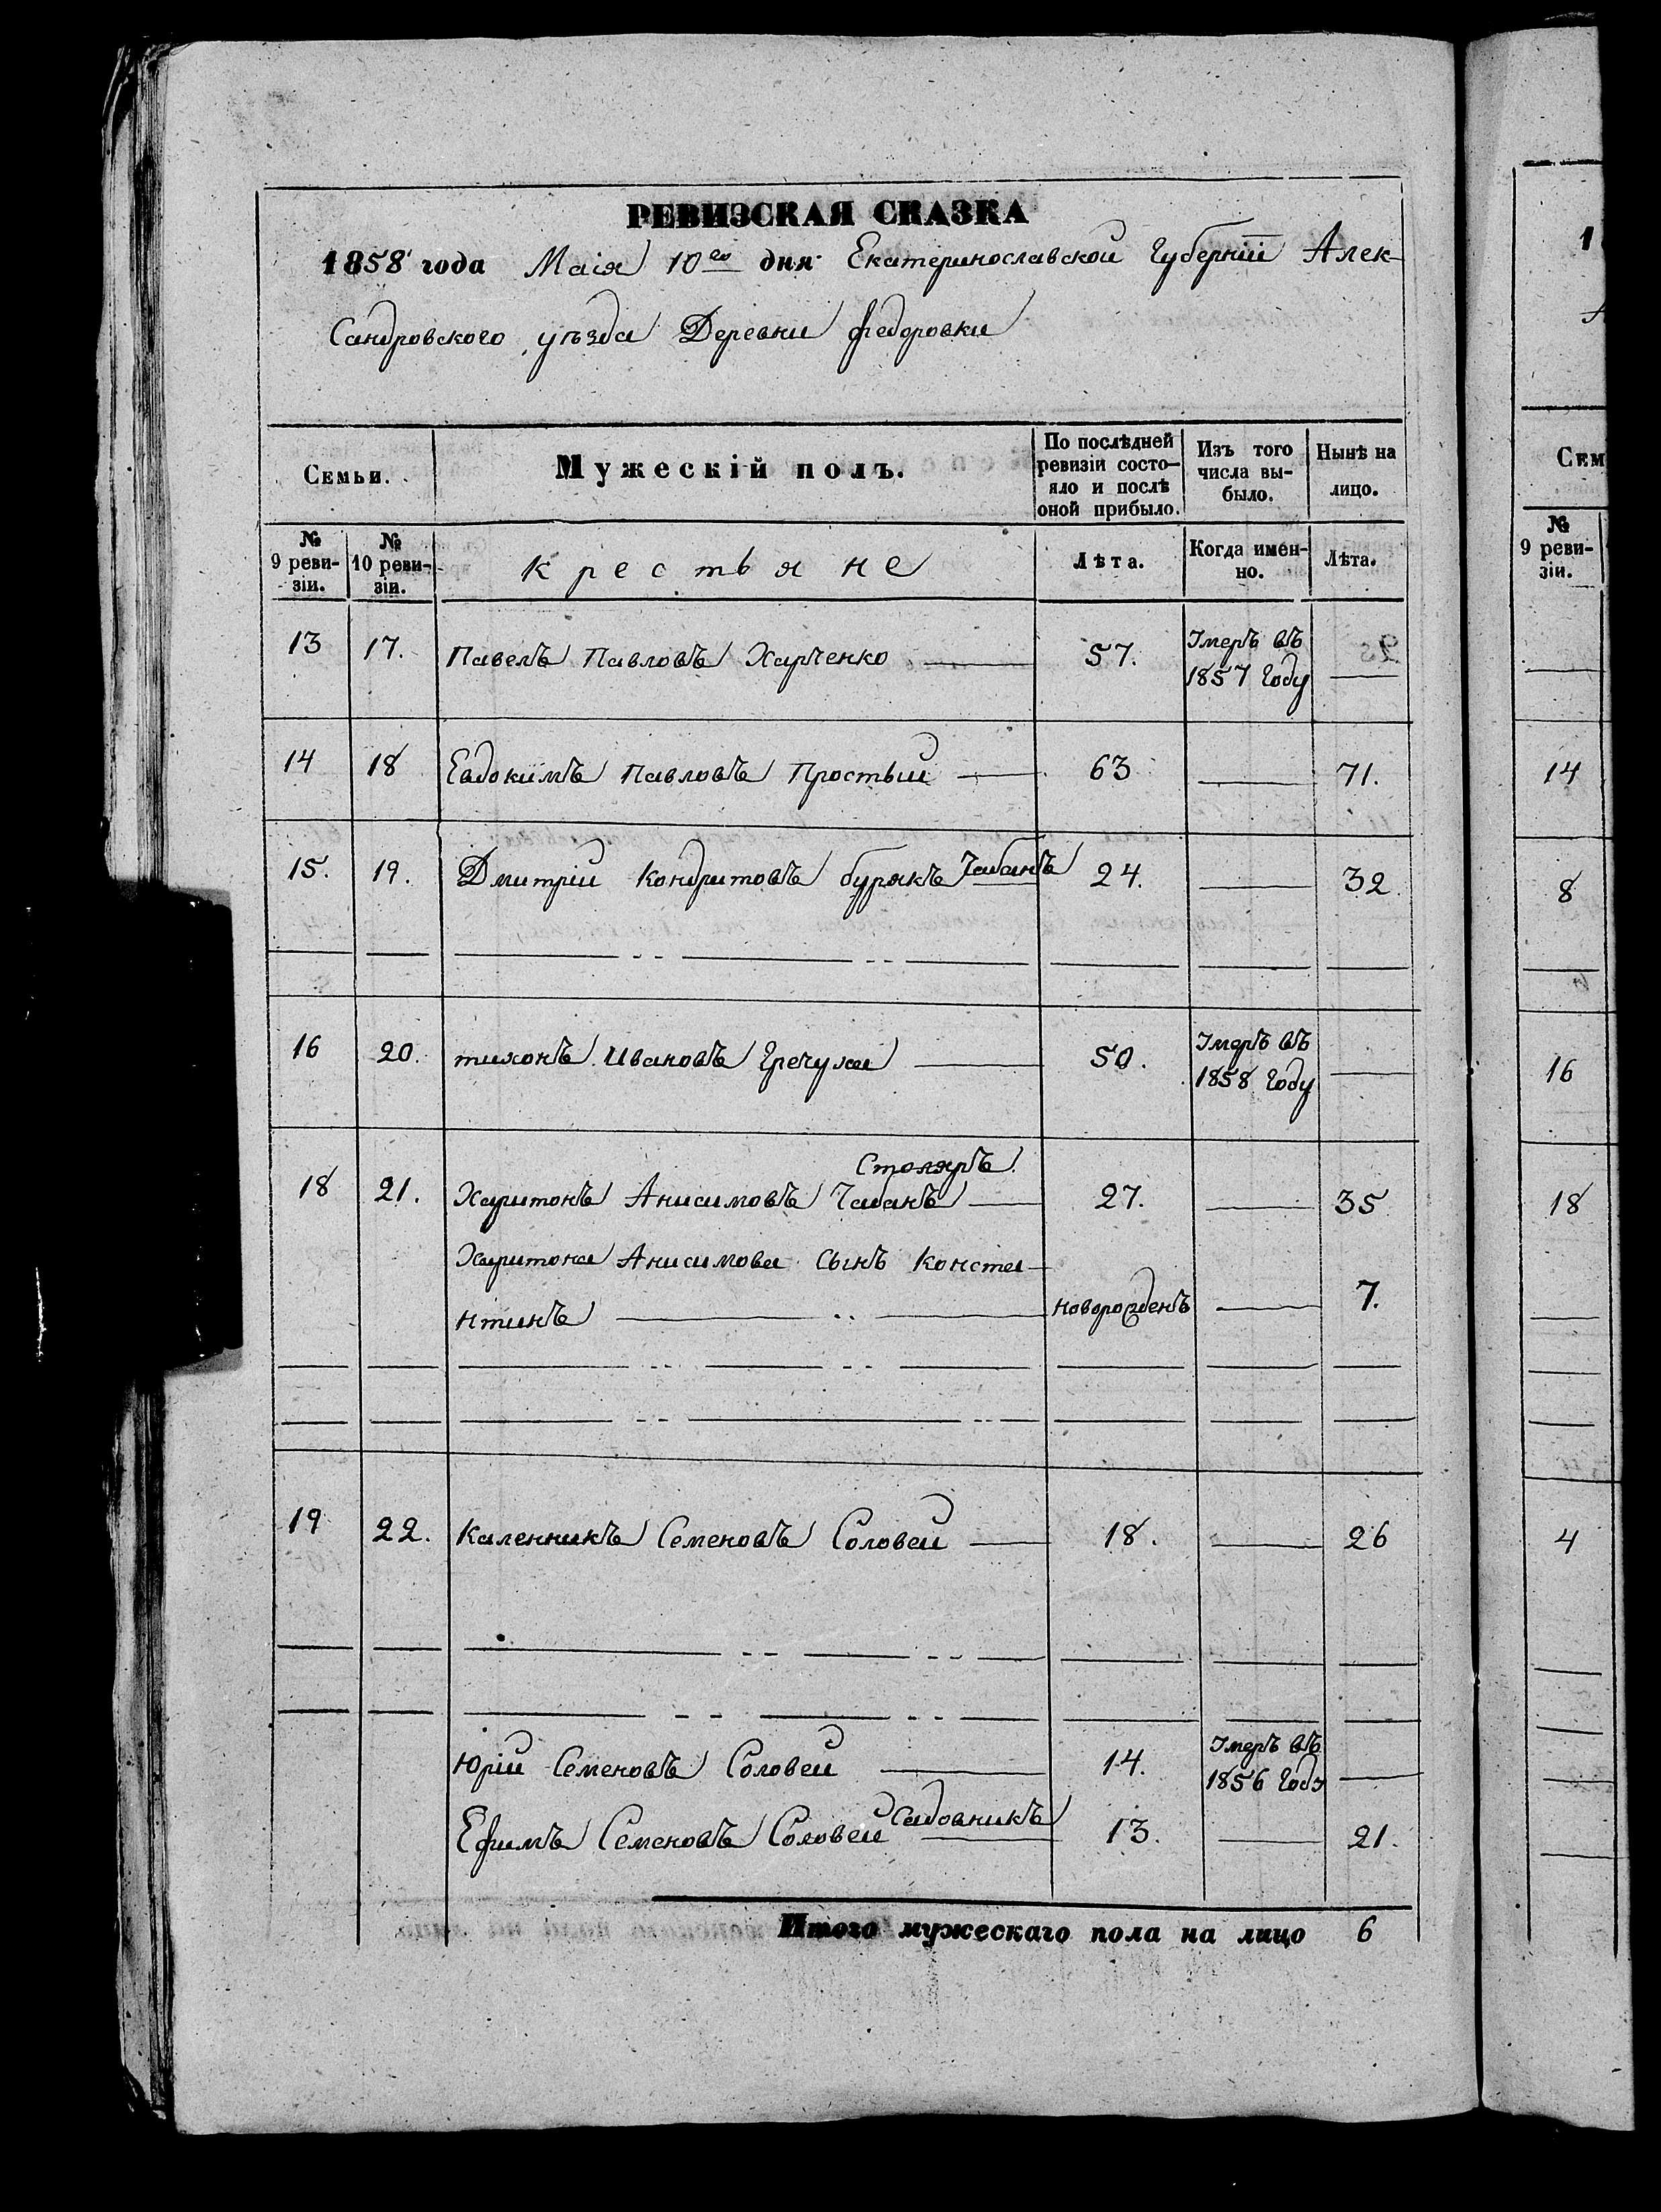 РЕВИЗСКАЯ СКАЗКА
1858 года Маія 10го дня Екатеринославской Губерніи Алек-
сандровского уѣзда Деревни федоровки
Семьи.
Мужескій полъ.
По послѣдней ревизіи состо-яло и послѣ оной прибыло.
Изъ того числа вы-было.
Нынѣ на лицо.
№ 9 реви-зіи.
№ 10 реви-зіи.
крестьяне
Лѣта.
Когда имен-но.
Лѣта.
13 17. Павелъ Павловъ Харченко 57. Умеръ въ 1857 Году
14 18 Евдокимъ Павловъ Простый 63 71.
15. 19. Дмитрій Кондратовъ бурякъ Чабанъ 24. 32.
16 20. тихонъ Ивановъ Гречуха 50. Умеръ въ 1858 Году
Столяръ
18 21. Харитонъ Анисимовъ Чабанъ 27. 35
Харитона Анисимова Сынъ Конста-
нтинъ новорожденъ 7.
19 22. Каленникъ Семеновъ Соловей 18. 26
Юрій Семеновъ Соловей 14. Умеръ въ 1856 Году
Ефимъ Семеновъ Соловей Садовникъ 13. 21.
Итого мужескаго пола на лицо 6
Сем
№ 9 реви-зіи.
14
8
16
18
4